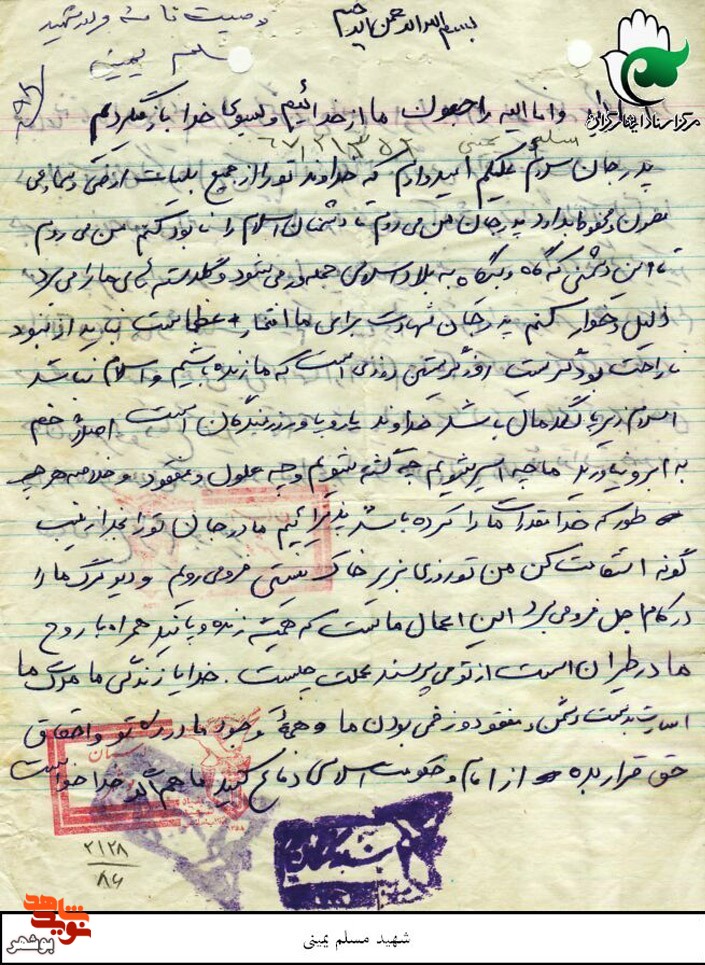 بسم الله الرحمن الرحیم
وصیت نامه برادر شهید
مسلم یمینی
مرکز اسناد ایثارگران
وانا الیه راجعون ما از خدائیم و بسوی خدا باز میگردیم
مسلم یمینی
پدر جان سلام علیکم امیدوارم که خداوند تورا از جمیع بلیات ارضی و سماوی
مصون و محفوظ بدارد پدر جان من می روم تا دشمنان اسلام را نابود کنم من می روم
تا این دشمنی که گاه و بیگاه به بلاد اسلامی حمله ور می شود و گلدسته های ما را می برد
ذلیل و خوار کنم پدر جان شهادت برای ما افتخار + عظمت نباید از نبود
ناراحت بود گریست روز گریستن روزی است که ما زنده باشیم و اسلام نباشد
اسلام زیر پا لگد مال باشد خداوند یار و یاور رزمندگان است اصلا خم
به ابرو نیاورید ما چه اسیر شویم چه کشته شویم و چه معلول و مفقود و خلاصه هر چه
طور که خدا مقدرات ما را کرده باشد پذیرائیم مادر جان تورا بخدا زینب
گونه استقامت کن من تو روزی بزیر خاک نیستی فرو می رویم و دیو مرگ ما را
در کام اجل فرو می برد این اعمال ماست که همیشه زنده و پایند همراه با روح
ما در طیران است از تو می پرسند عملت چیست . خدایا زندگی ما مرگ ما
اسارت بدست دشمن و مفقود و زخمی بودن ما و همهٔ وجود ما در راه تو و احقاق
حق قرار بده از امام و حکومت اسلامی دفاع کنید ما هم اگر خدا خواست
۲۱۲۸
۸۶
نوید شاهد
بوشهر
شهید مسلم یمینی